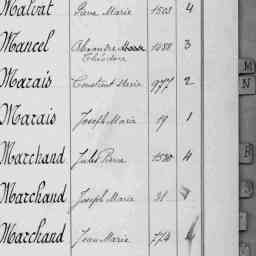 Malvat Pierre Marie 1503 4
Mancel Alexandre
Théodore 1488 3
Marais Constant Marie 977 2
Marais Joseph Marie 19 1
Marchand Jules Pierre 1530 4
Marchand Joseph Marie 31
Marchand Jean Marie 774
M
N